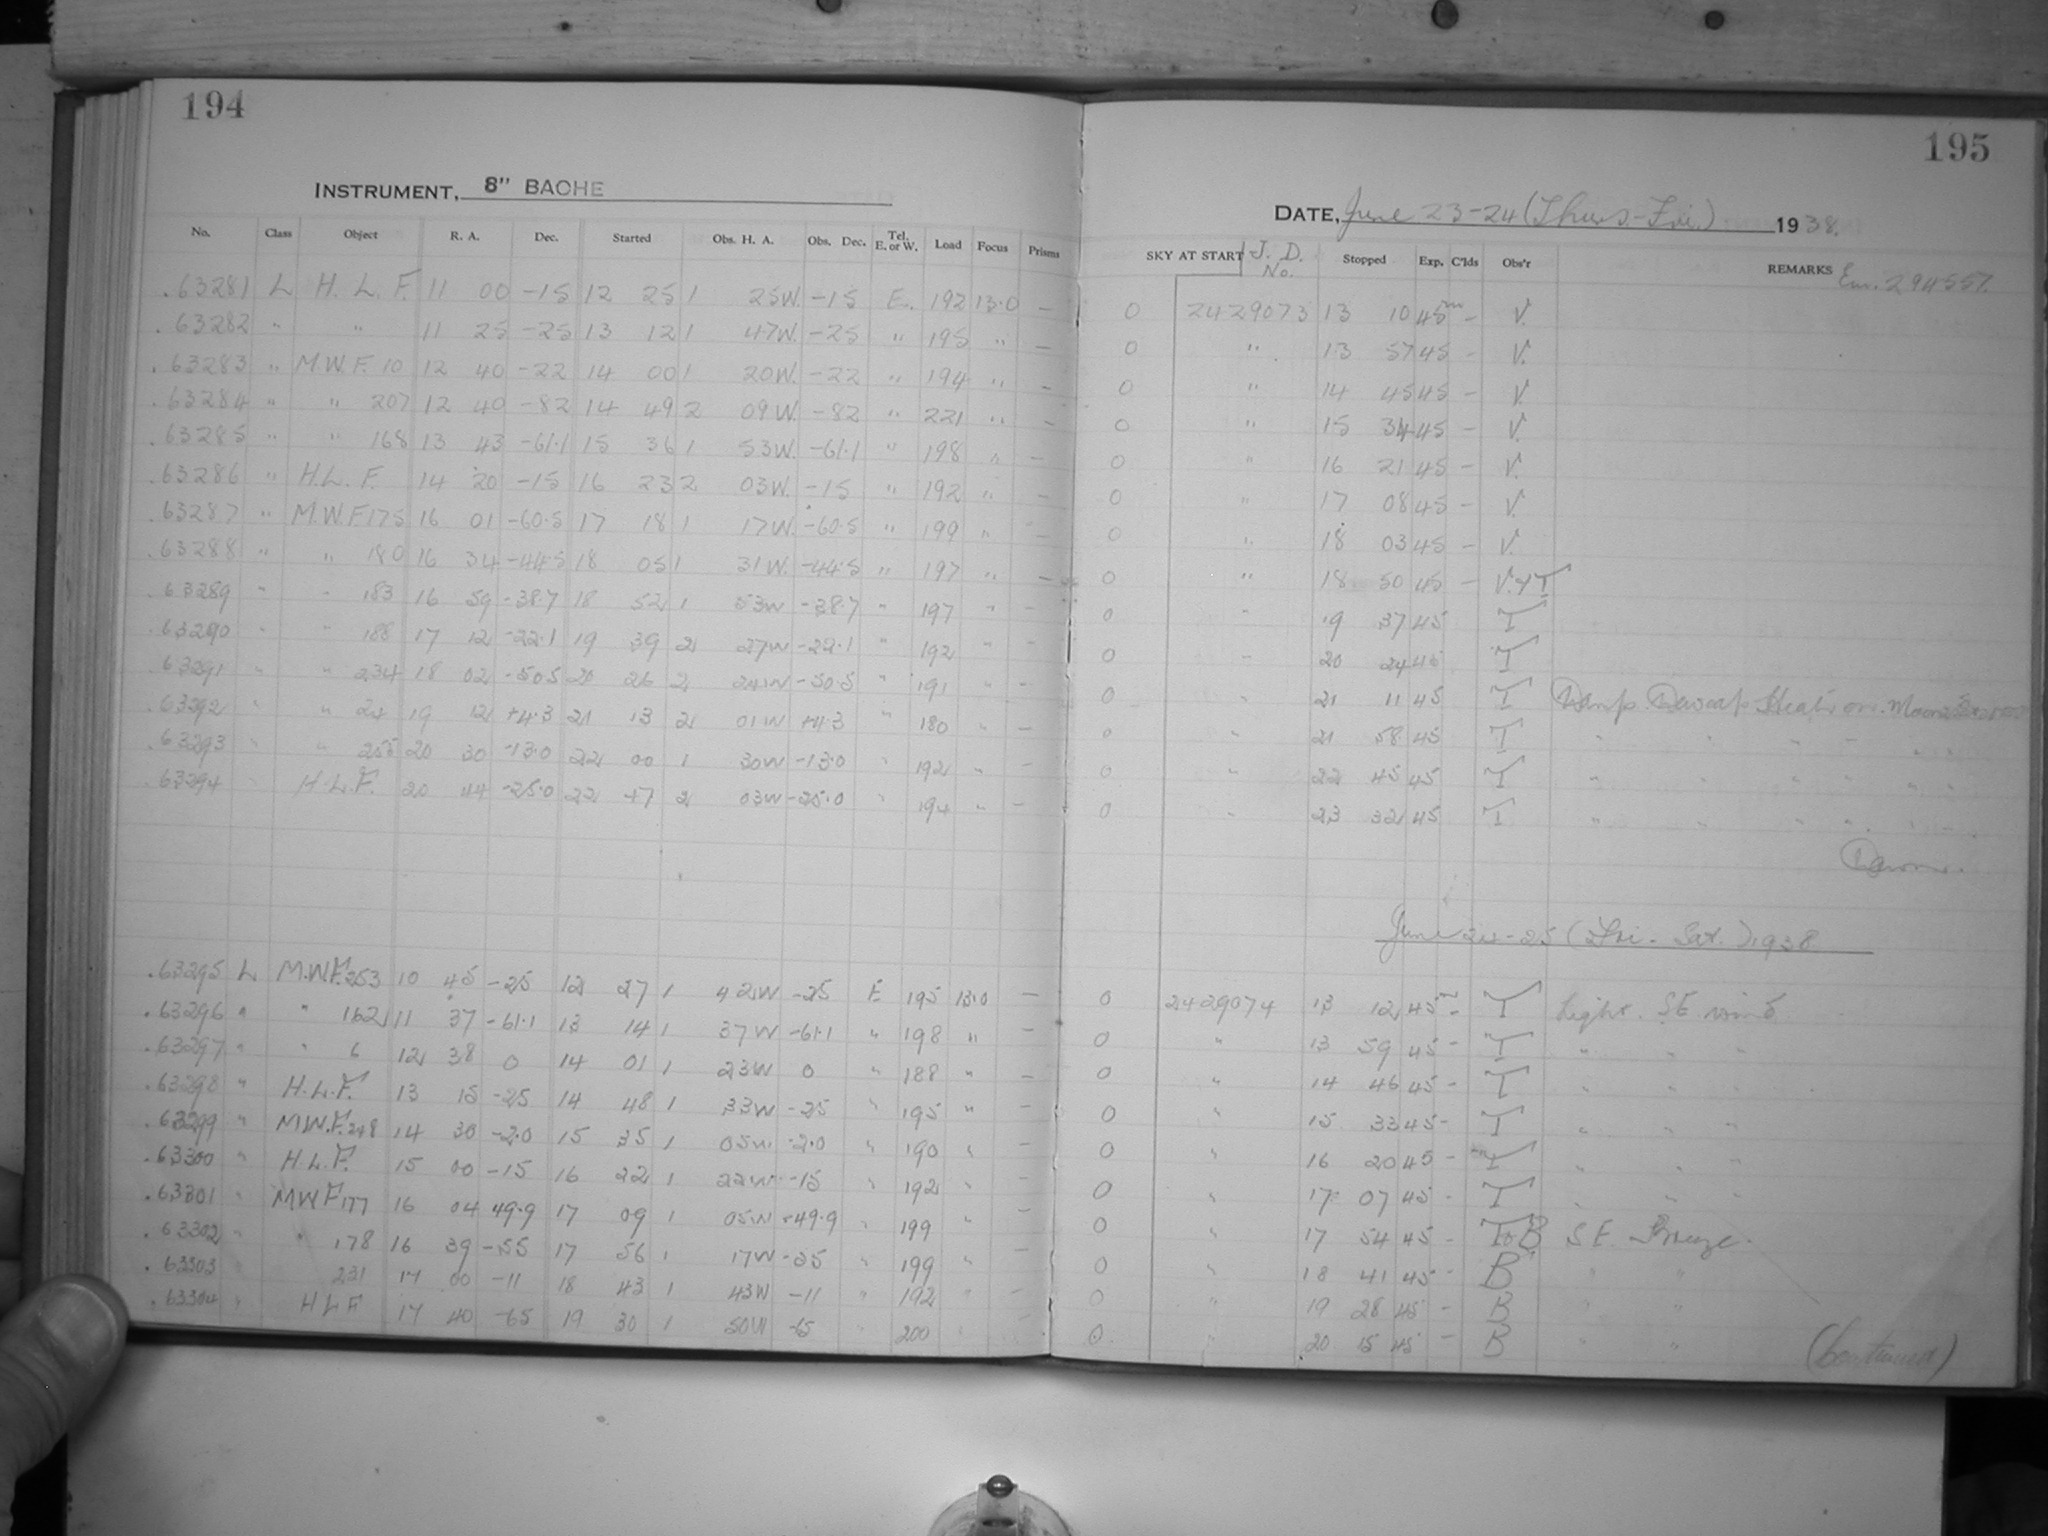 194
INSTRUMENT, 8" BACHE
No. Class Object R. A. Dec. Started Obs. H. A. Obs. Dec. Tel. E. or W. Load Focus Prisms
.63281 L H. L. F. 11 00 -15 12 25 1 25W. -15 E. 192 13.0 —
.63282 " " 11 25 -25 13 12 1 47W. -25 " 195 " —
.63283 " M.W.F. 10 12 40 -22 14 00 1 20W. -22 " 194 " —
.63284 " " 207 12 40 -82 14 49 2 09W. -82 " 221 " —
.63285 " " 168 13 43 -61.1 15 36 1 53W. -61.1 " 198 " —
.63286 " H.L. F. 14 20 -15 16 23 2 03W. -15 " 192 " —
.63287 " M.W.F 175 16 01 -60.5 17 18 1 17W. -60.5 " 199 " —
.63288 " " 180 16 34 -44.5 18 05 1 31W. -44.5 " 197 " —
.63289 " " 183 16 59 -38.7 18 52 1 53W -38.7 " 197 " —
.63290 " " 188 17 12 -22.1 19 39 2 27W -22.1 " 192 " —
.63291 " " 234 18 02 -50.5 20 26 2 24W -50.5 " 191 " —
.63292 " " 24 19 12 +4.3 21 13 2 01W +4.3 " 180 " —
.63293 " " 255 20 30 -13.0 22 00 1 30W -13.0 " 192 " —
.63294 " H.L.F. 20 44 -25.0 22 47 2 03W -25.0 " 194 " —
.63295 L M.W.F. 253 10 45 -25 12 27 1 42W -25 E 195 13.0 —
.63296 " " 162 11 37 -61.1 13 14 1 37W -61.1 " 198 " —
.63297 " " 6 12 38 0 14 01 1 23W 0 " 188 " —
.63298 " H.L.F. 13 15 -25 14 48 1 33W -25 " 195 " —
.63299 " M.W.F. 248 14 30 -2.0 15 35 1 05W -2.0 " 190 " —
.63300 " H.L.F. 15 00 -15 16 22 1 22W -15 " 192 " —
.63301 " M.W.F 177 16 04 49.9 17 09 1 05W -49.9 " 199 " —
.63302 " " 178 16 39 -55 17 56 1 17W -55 " 199 " —
.63303 " 231 17 00 -11 18 43 1 43W -11 " 192 " —
.63304 " H L F 17 40 -65 19 30 1 50W -65 " 200 " —
195
DATE, June 23-24 (Thurs.-Fri.) 1938.
SKY AT START J. D. No. Stopped Exp. C'lds Obs'r REMARKS Em. 294557.
0 2429073 13 10 45m — V.
0 " 13 57 45 — V.
0 " 14 45 45 — V.
0 " 15 34 45 — V.
0 " 16 21 45 — V.
0 " 17 08 45 — V.
0 " 18 03 45 — V.
0 " 18 50 45 — V. & T
0 " 19 37 45 T
0 " 20 24 45 T
0 " 21 11 45 T Damp Dewcap Heat on. Moon
0 " 21 58 45 T " " " " "
0 " 22 45 45 T " " " " "
0 " 23 32 45 T " " " " "
Dawn.
June 24-25 (Fri - Sat.) 1938
0 2429074 13 12 45m — T Light S.E. wind
0 " 13 59 45 — T " " "
0 " 14 46 45 — T " " "
0 " 15 33 45 — T " " "
0 " 16 20 45 — T " " "
0 " 17 07 45 — T " " "
0 " 17 54 45 — T & B S.E. Breeze.
0 " 18 41 45 — B " "
0 " 19 28 45 — B " "
0 " 20 15 45 — B " "
(Continued)